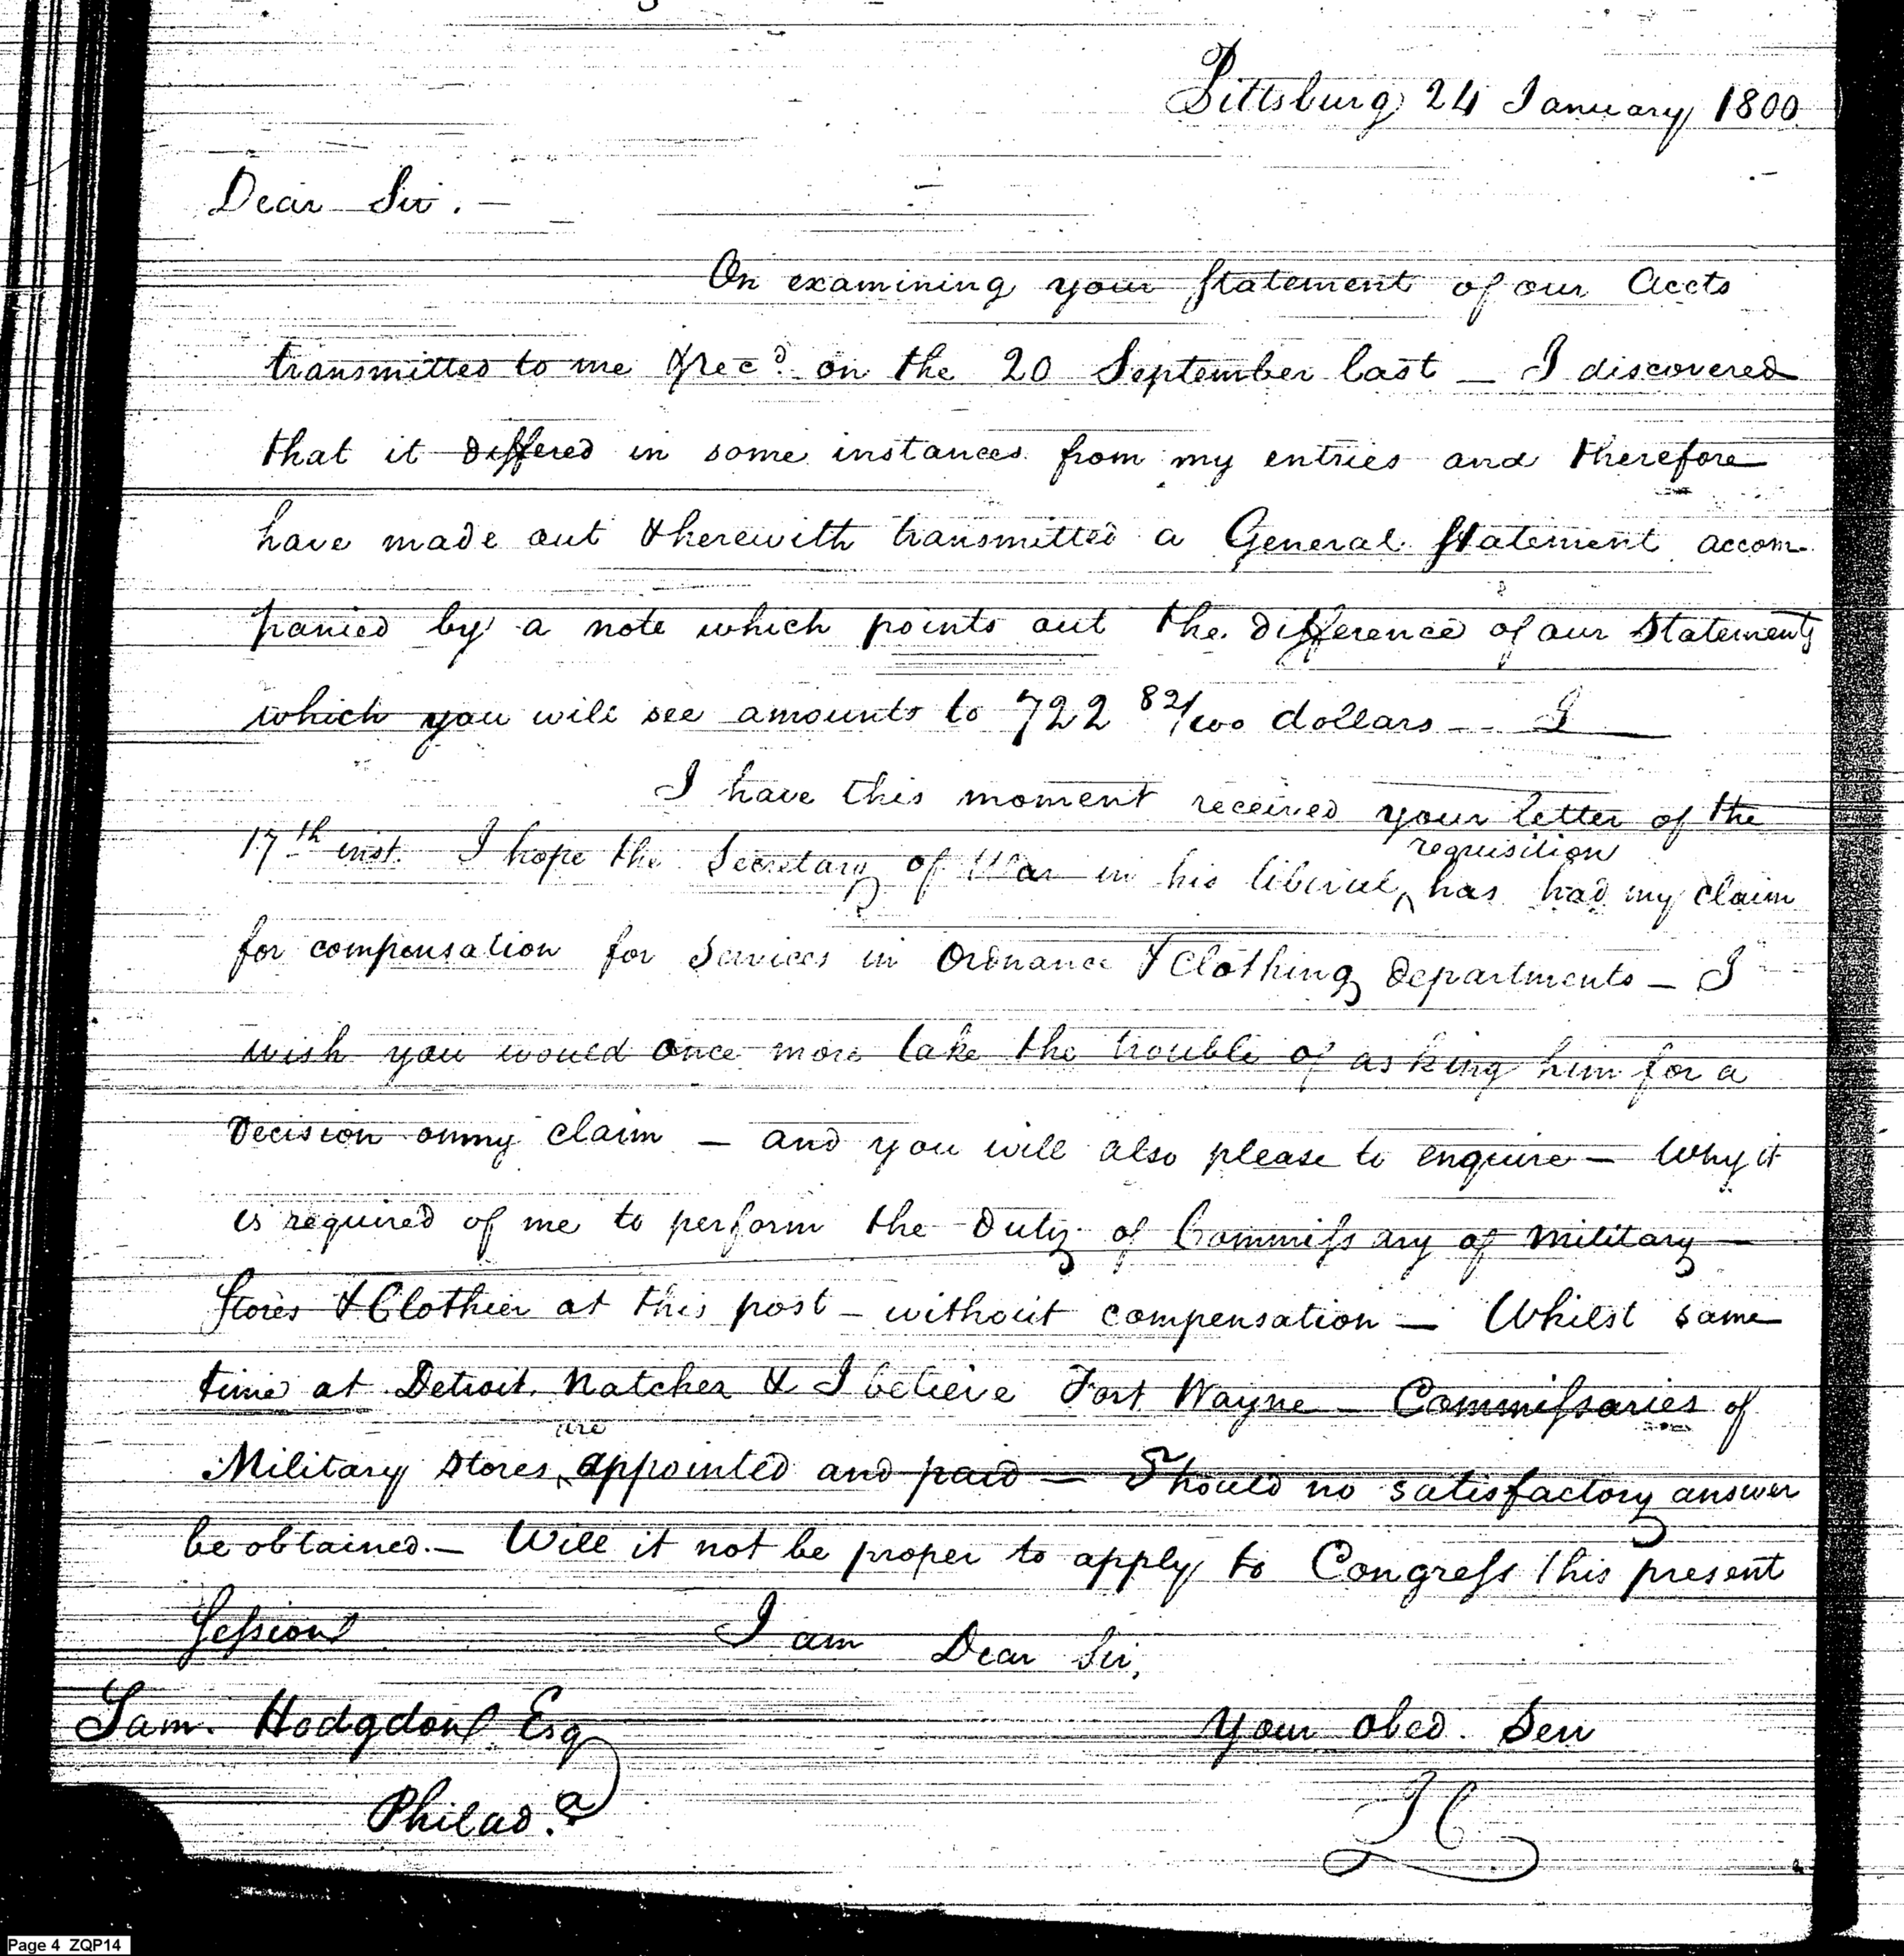 Pittsburg 24 January 1800
Dear Sir. —
On examining your Statement of our Accts
transmitted to me & recd. on the 20 September last — I discovered
that it differed in some instances from my entries and therefore
have made out & herewith transmitted a General Statement accom-
panied by a note which points out the difference of our Statements
which you will see amounts to 722 82/100 dollars — I
I have this moment received your letter of the
17th inst. I hope the Secretary of War in his liberal
requisition
has had my claim
for compensation for Services in Ordnance & Clothing departments — I
wish you would once more take the trouble of asking him for a
Decision on my claim — and you will also please to enquire — Why it
is required of me to perform the Duty of Commissary of Military —
Stores & Clothier at this post — without compensation — Whilst same
time at Detroit, Natchez & I believe Fort Wayne — Commissaries of
are
Military Stores appointed and paid — Should no satisfactory answer
be obtained. — Will it not be proper to apply to Congress this present
Session
I am Dear Sir,
Sam. Hodgdon Esq
Your obed. Serv
Philada.
Page 4 ZQP14